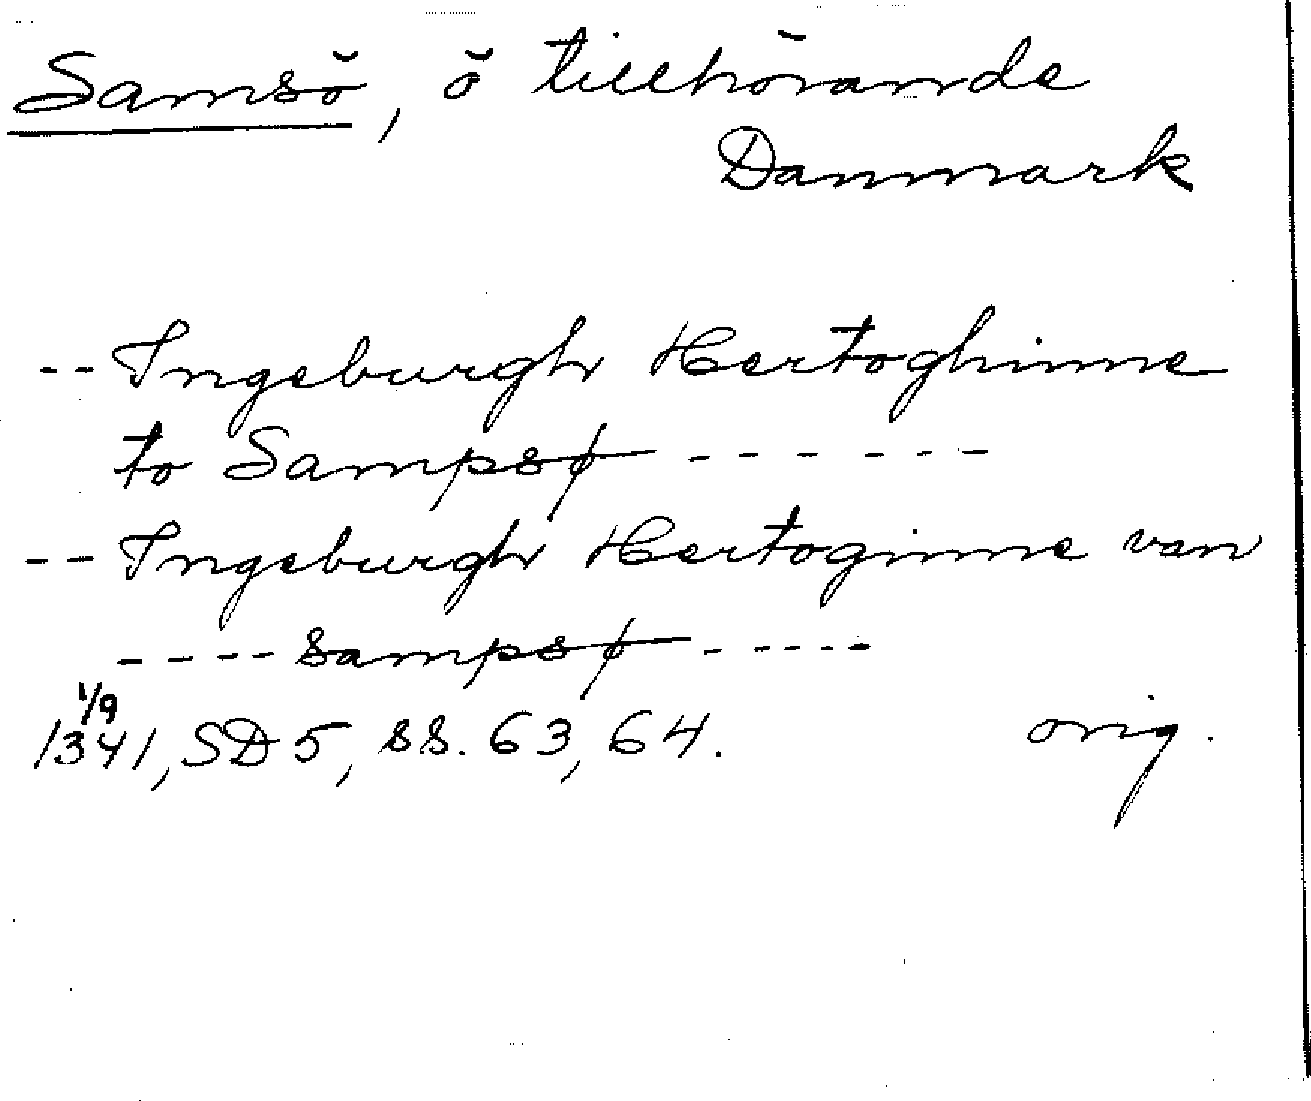 Samsö, ö tillhörande
Danmark
-- Ingeburgh Hertoghinne
to Sampsø - - - - - - -
-- Ingeburgh Hertoginne van
- - - - sampsø - - - - -
1/9
1341, SD 5, ss. 63, 64. orig.